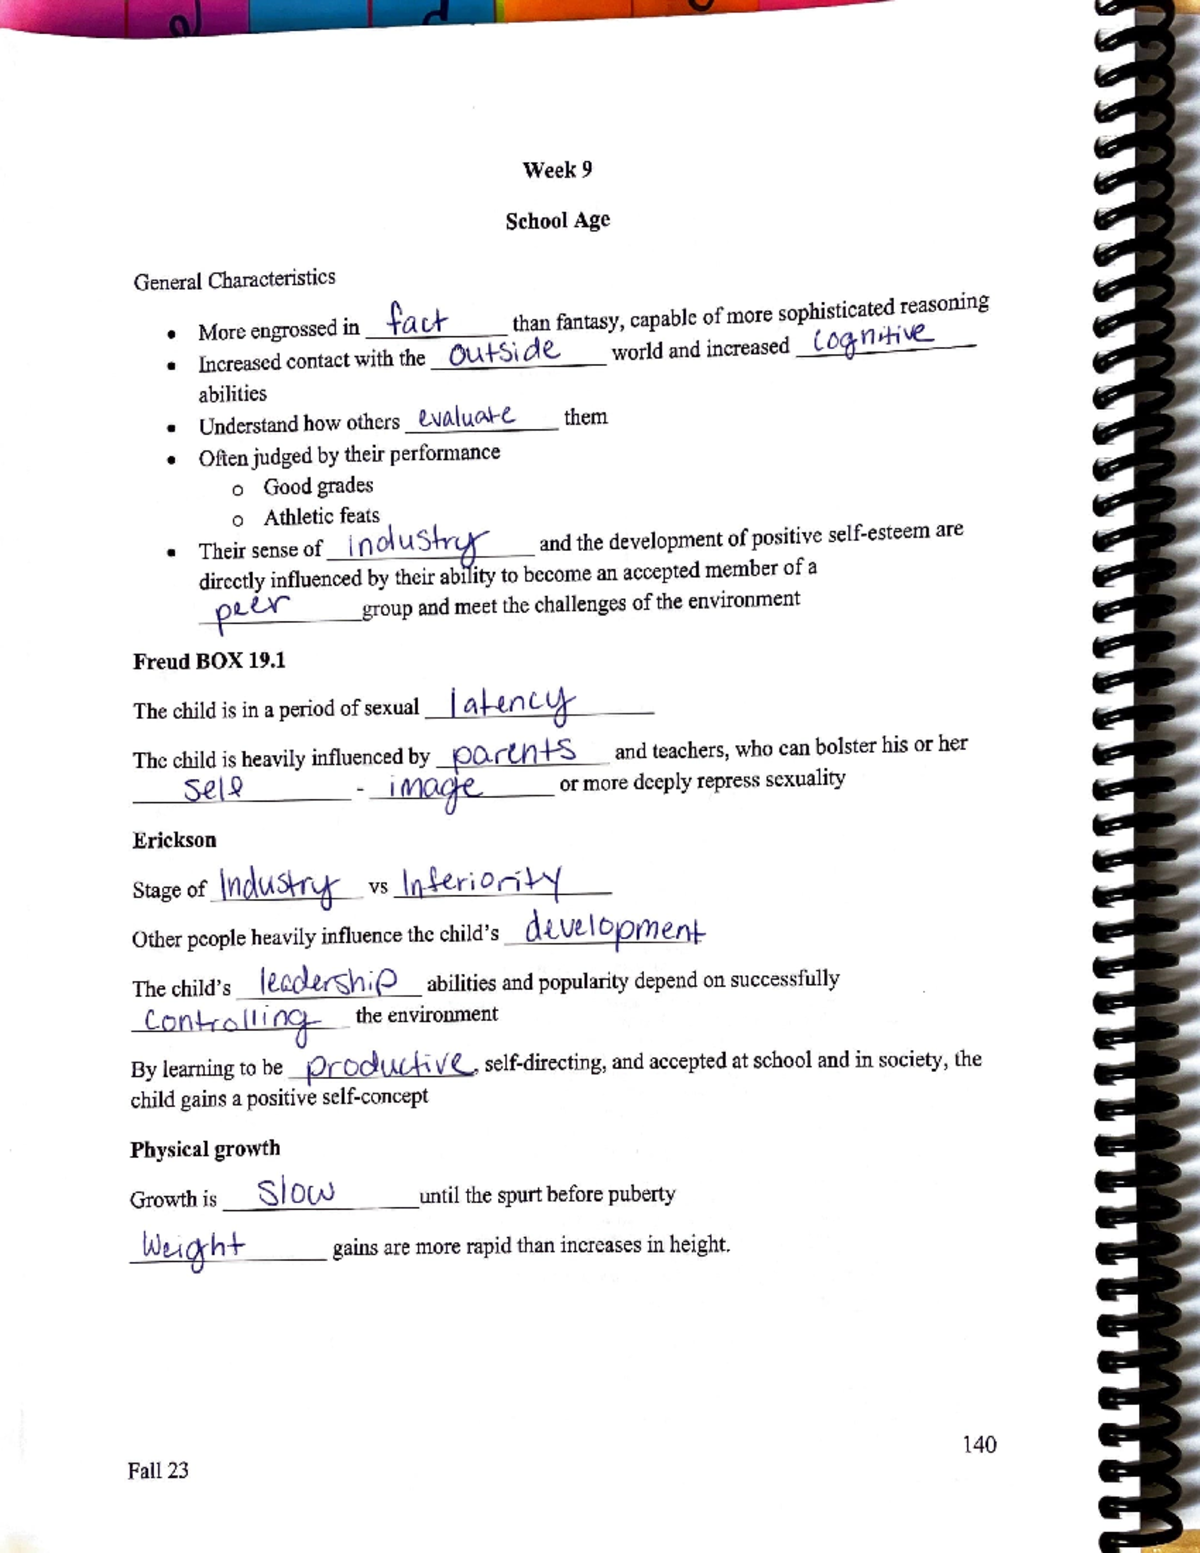 Week 9
School Age
General Characteristics
• More engrossed in fact than fantasy, capable of more sophisticated reasoning
• Increased contact with the outside world and increased cognitive
abilities
• Understand how others evaluate them
• Often judged by their performance
o Good grades
o Athletic feats
• Their sense of industry and the development of positive self-esteem are
directly influenced by their ability to become an accepted member of a
peer group and meet the challenges of the environment
Freud BOX 19.1
The child is in a period of sexual latency
The child is heavily influenced by parents and teachers, who can bolster his or her
self - image or more deeply repress sexuality
Erickson
Stage of Industry vs Inferiority
Other people heavily influence the child's development
The child's leadership abilities and popularity depend on successfully
controlling the environment
By learning to be productive, self-directing, and accepted at school and in society, the
child gains a positive self-concept
Physical growth
Growth is slow until the spurt before puberty
Weight gains are more rapid than increases in height.
140
Fall 23